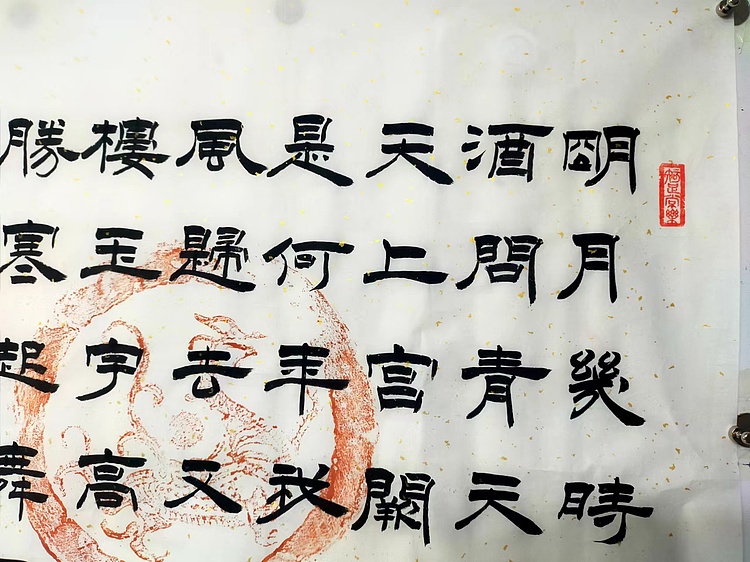 知足常樂
明月幾時
酒問青天
天上宮闕
是何年我
風歸去又
樓玉宇高
勝寒起舞